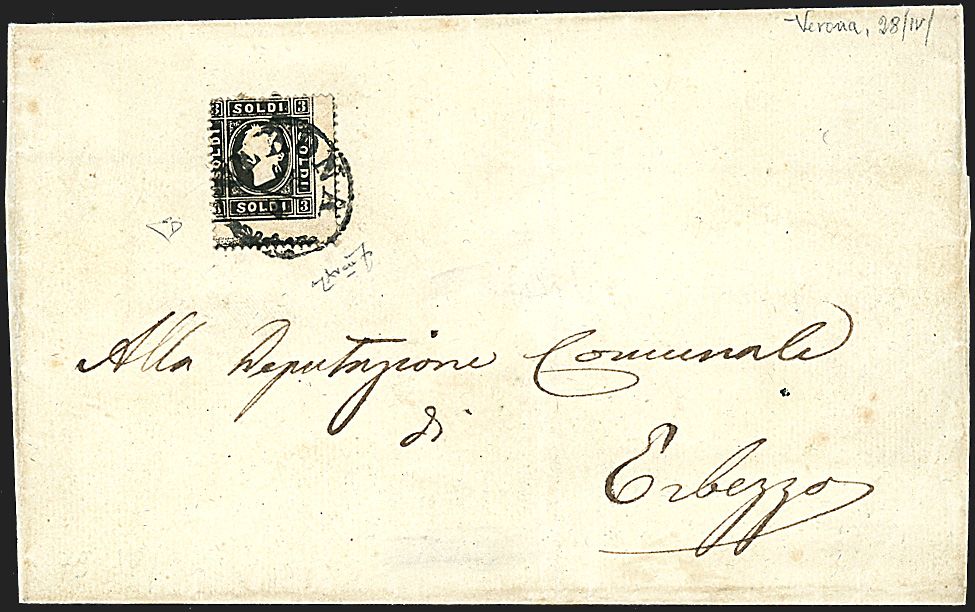 Verona, 28/IV/
3 SOLDI 3
SOLDI
SOLDI
3 SOLDI 3
VERONA
Alla Deputazione Comunale
di
Erbezzo